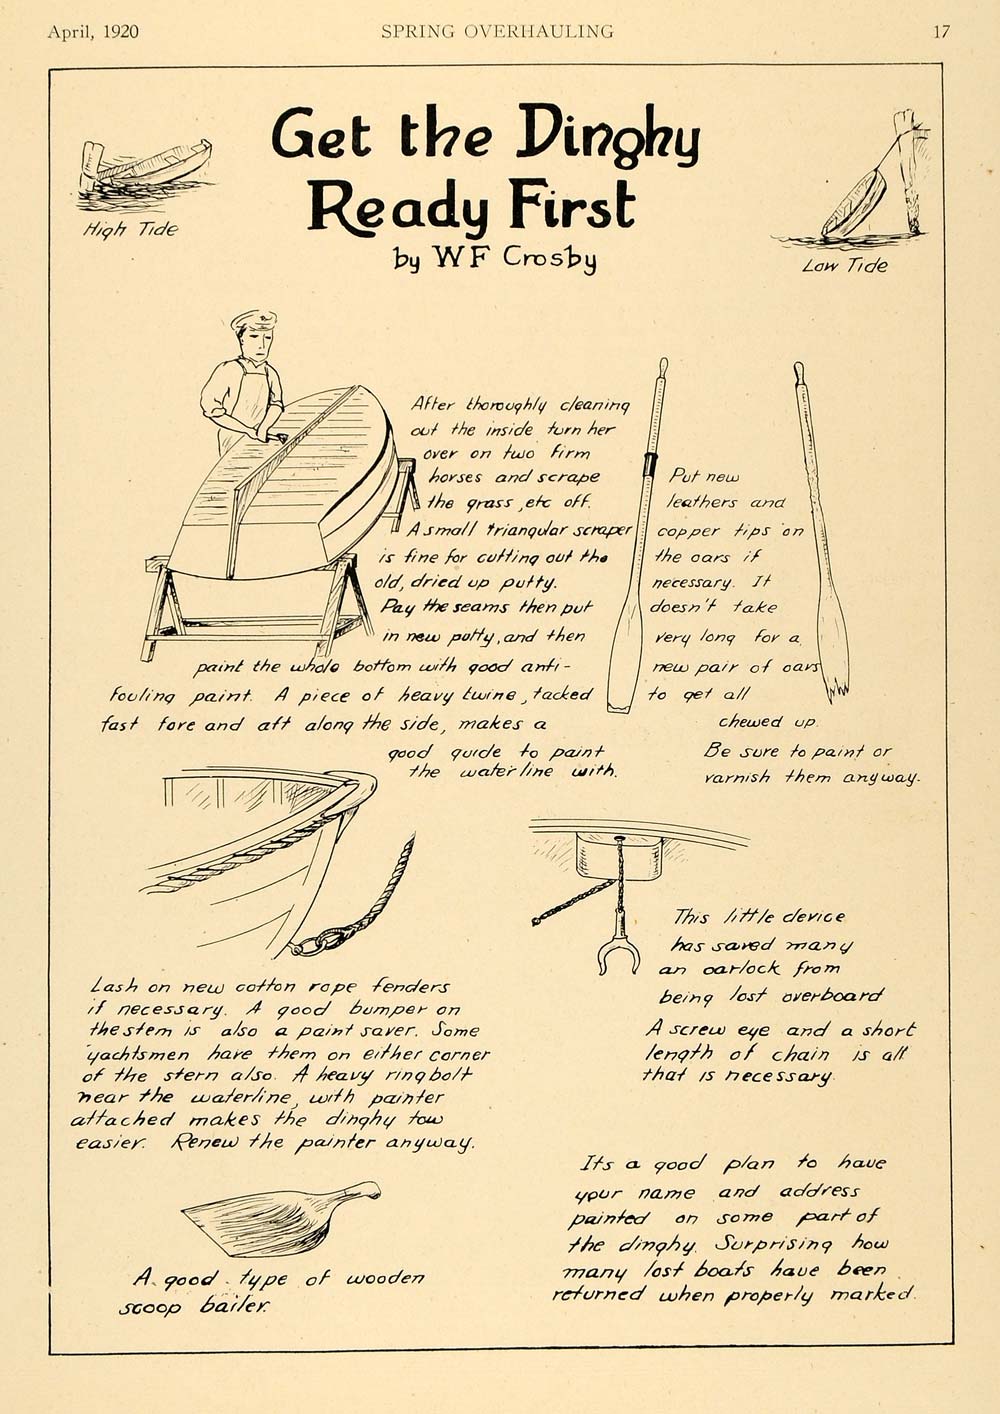 April, 1920
SPRING OVERHAULING
17
Get the Dinghy
Ready First
by W F Crosby
High Tide
Low Tide
After thoroughly cleaning
out the inside turn her
over on two firm
horses and scrape
the grass, etc off.
A small triangular scraper
is fine for cutting out the
old, dried up putty.
Pay the seams then put
in new putty, and then
paint the whole bottom with good anti-
fouling paint. A piece of heavy twine, tacked
fast fore and aft along the side, makes a
good guide to paint
the waterline with.
Put new
leathers and
copper tips on
the oars if
necessary. It
doesn't take
very long for a
new pair of oars
to get all
chewed up.
Be sure to paint or
varnish them anyway.
Lash on new cotton rope fenders
if necessary. A good bumper on
the stem is also a paint saver. Some
yachtsmen have them on either corner
of the stern also. A heavy ringbolt
near the waterline, with painter
attached makes the dinghy tow
easier. Renew the painter anyway.
This little device
has saved many
an oarlock from
being lost overboard
A screw eye and a short
length of chain is all
that is necessary.
A good type of wooden
scoop bailer.
Its a good plan to have
your name and address
painted on some part of
the dinghy. Surprising how
many lost boats have been
returned when properly marked.